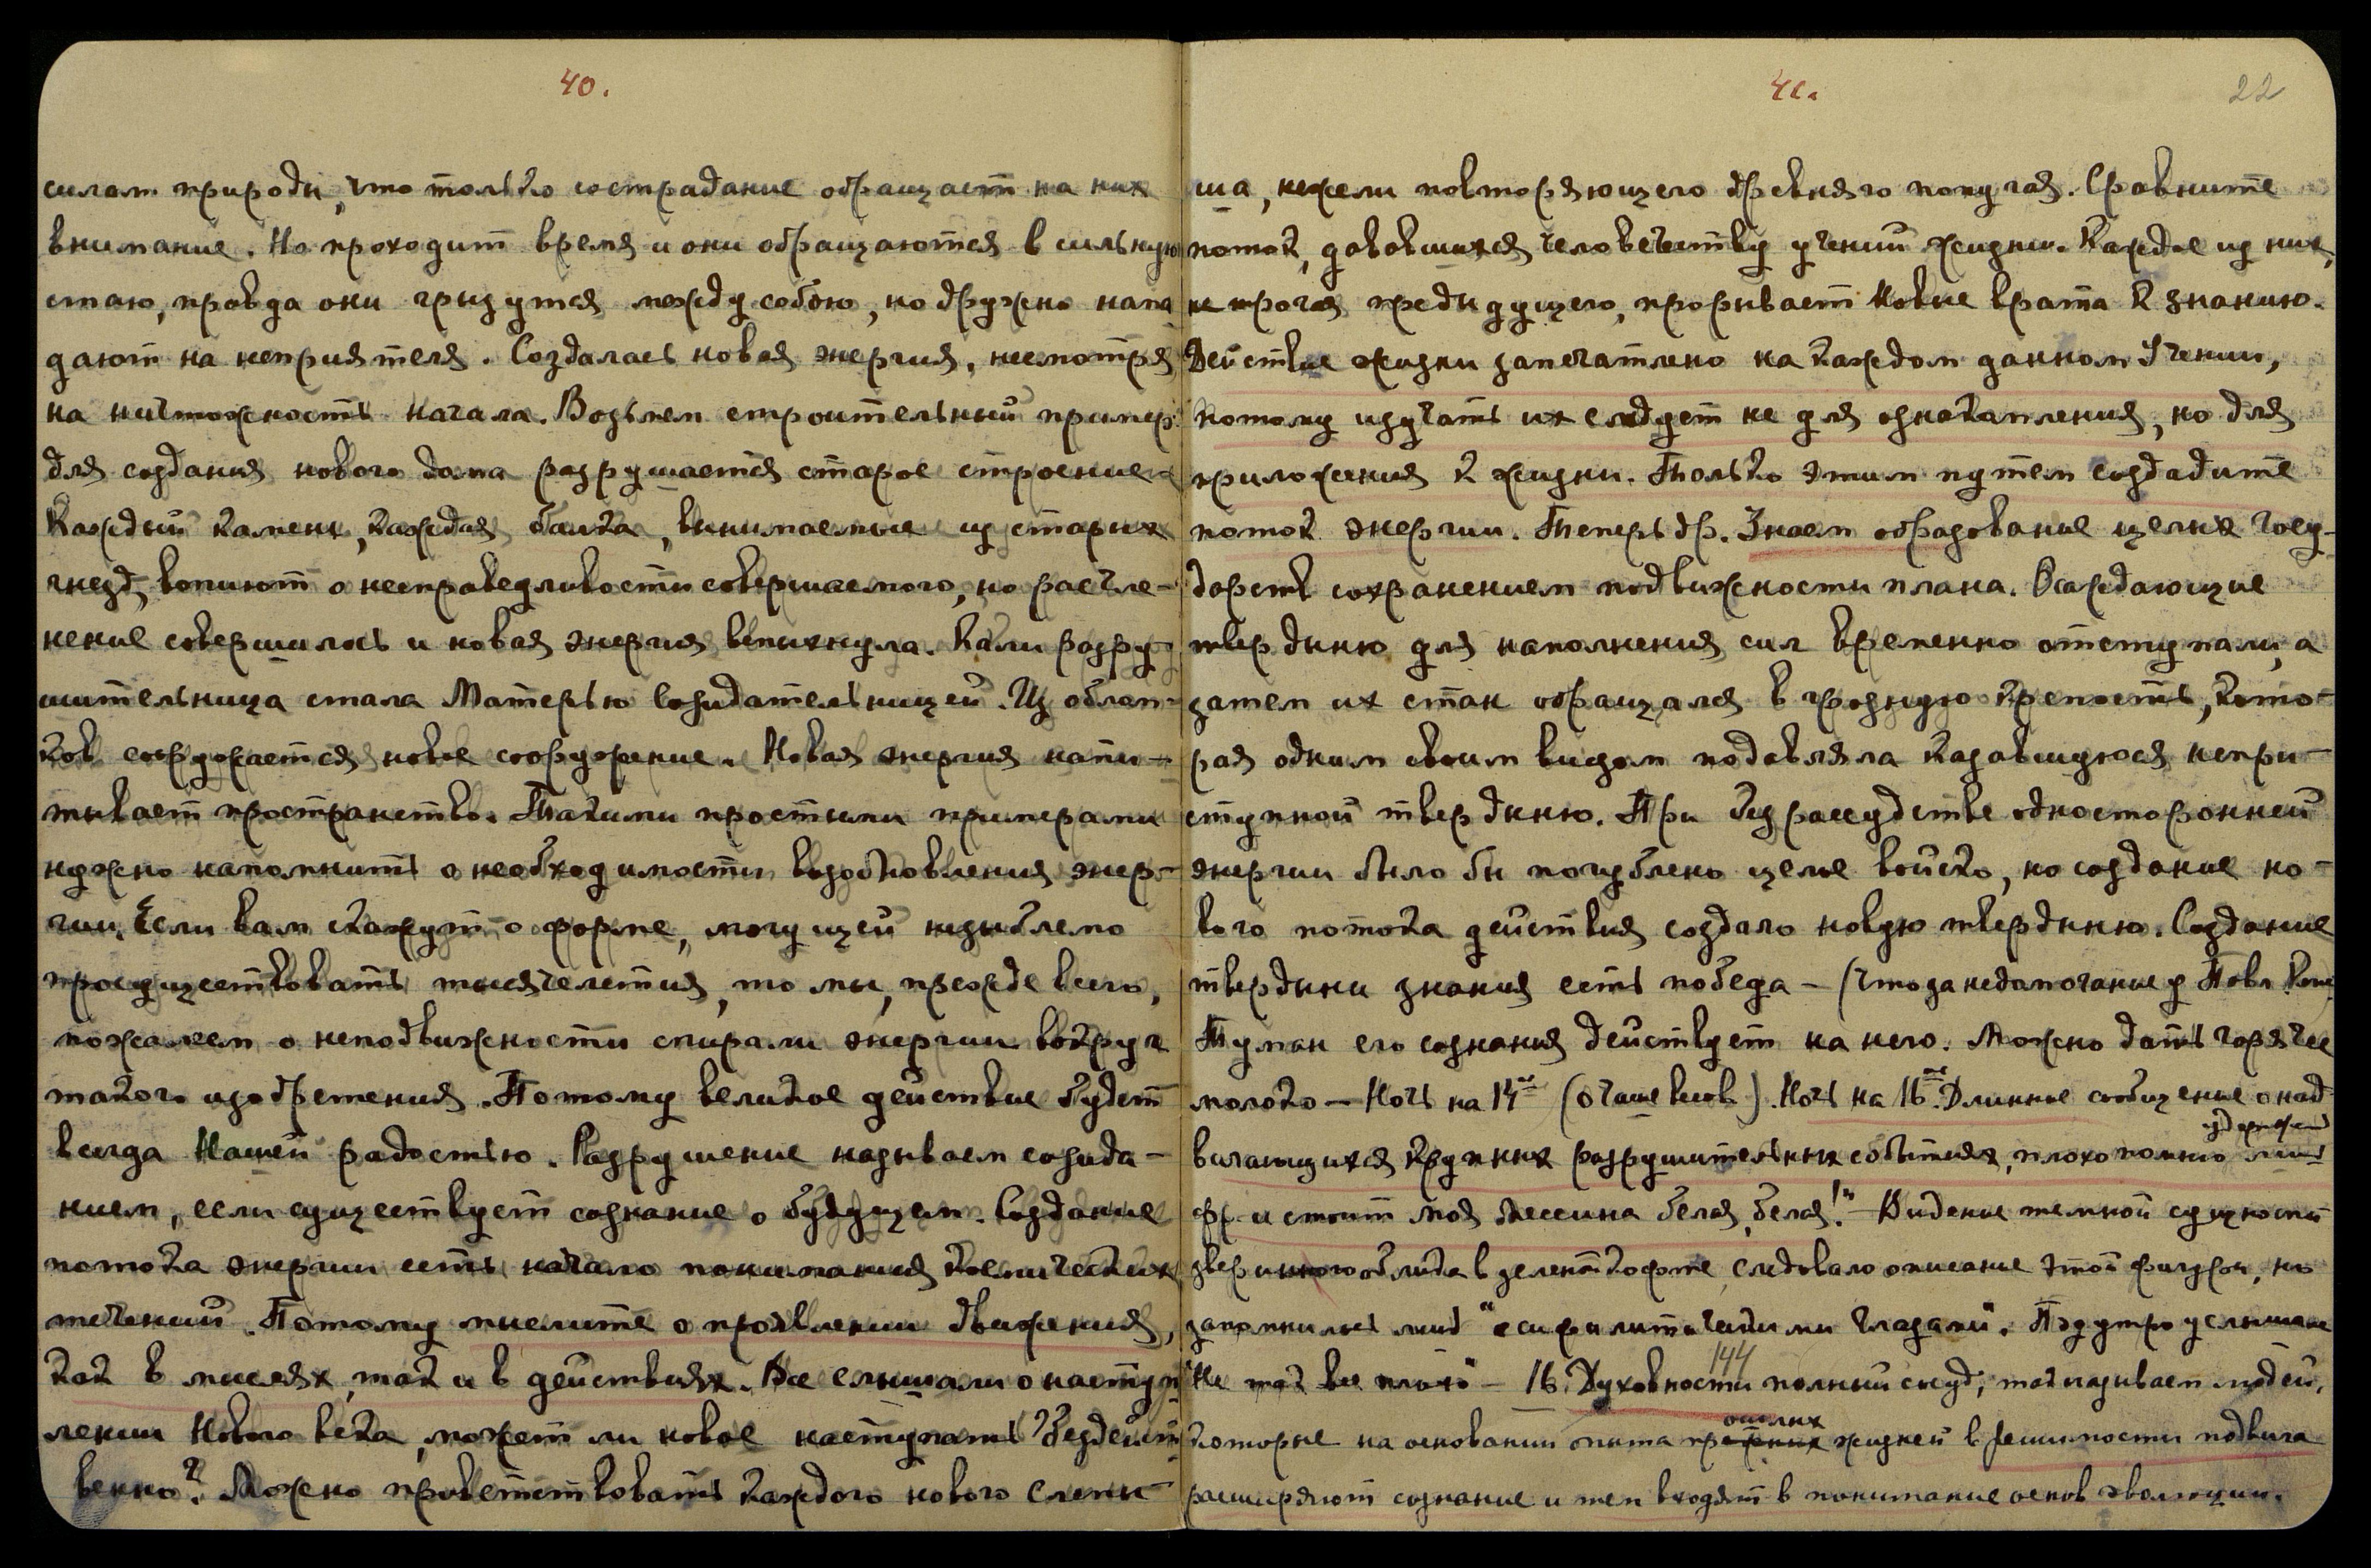 40.
силам природы, что только сострадание обращает на них
внимание. Но проходит время и они обращаются в сильную
стаю, правда они грызутся между собою, но дружно напа
дают на неприятеля. Создалась новая энергия, несмотря
на ничтожность начала. Возьмем строительный пример:
для создания нового дома разрушается старое строение.
Каждый камень, каждая балка, вынимаемые из старых
гнезд, вопиют о несправедливости совершаемого, но расчле-
нение совершилось и новая энергия вспыхнула. Кали разру-
шительница стала Матерью созидательницей. Из облом-
ков сооружается новое сооружение. Новая энергия напи-
тывает пространство. Такими простыми примерами
нужно напомнить о необходимости возобновления энер-
гии. Если вам скажут о форме, могущей незыблемо
просуществовать тысячелетия, то мы, прежде всего,
пожалеем о неподвижности спирали энергии вокруг
такого изобретения. Потому великое действие будет
всегда Нашей радостью. Разрушение называем созида-
нием, если существует сознание о будущем. Создание
потока энергии есть начало понимания космических
течений. Потому мыслите о проявлении движения,
как в мыслях, так и в действиях. Все слышали о наступ
лении Нового века, может ли новое наступать бездейст-
венно? Можно приветствовать каждого нового слепы-
41.
22
ша, нежели повторяющего древняго попугая. Сравните
поток, дававшихся человечеству учений жизни. Каждое из них,
не трогая предыдущего, прорывает Новые врата к знанию.
Действие жизни запечатлено на каждом данном Учении,
потому изучать их следует не для ознакомления, но для
приложения к жизни. Только этим путем создадите
поток энергии. Теперь др. Знаем образование целых Госу-
дарств сохранением подвижности плана. Осаждающие
твердыню для наполнения сил временно отступали, а
затем их стан обращался в грозную крепость, кото-
рая одним своим видом подавляла казавшуюся непри-
ступной твердыню. При безрассудстве односторонней
энергии было бы погублено целое войско, но создание но-
вого потока действия создало новую твердыню. Создание
твердыни знания есть победа — (что за недомогание у Павл. Конс.
Туман его сознания действует на него. Можно дать горячее
молоко — Ночь на 14ое (о чаше весов). Ночь на 16ое Длинное сообщение о над-
вигающихся крупных разрушительных событиях, плохо помню
и стоит моя Мессина белая, белая!" — Видение темной сущности
звериного облика в зеленой кофте, следовало описание этой фигуры, но
запомнилось лишь "с сифилитическими глазами". Под утро услышала
"Не так все плохо" — 16. Духовности полный сосуд; так называем людей,
144
ошлых
которые на основании опыта прежних жизней в решимости подвига
расширяют сознание и тем входят в понимание основ эволюции.